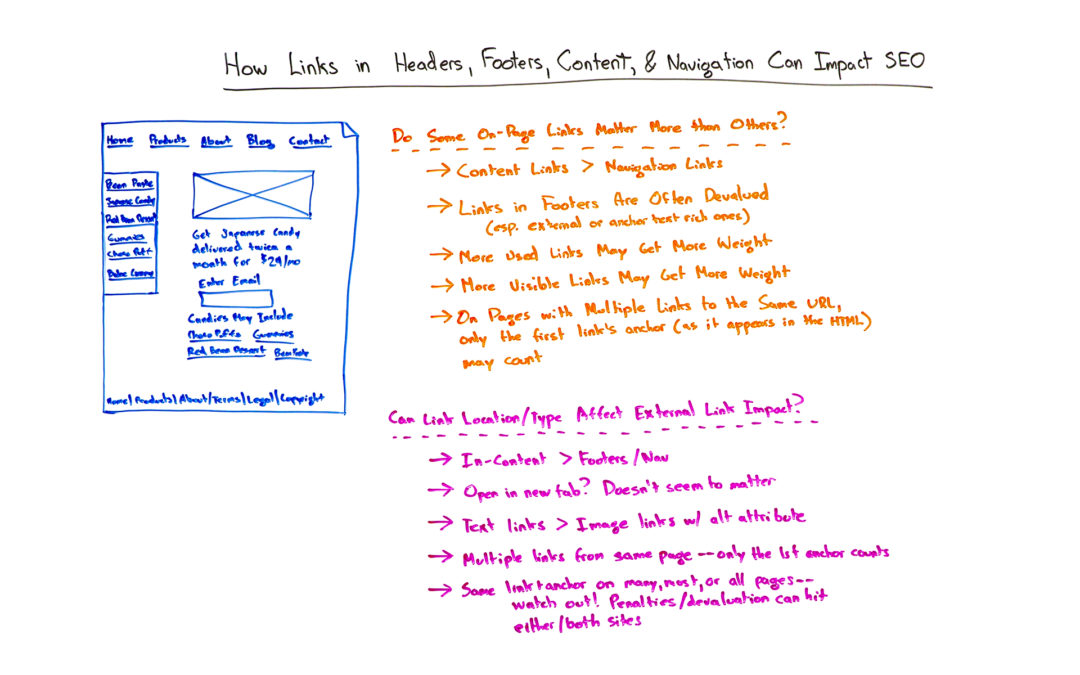 How Links in Headers, Footers, Content, & Navigation Can Impact SEO
Home Products About Blog Contact
Bean Paste
Japanese Candy
Red Bean Dessert
Gummies
Choco Puffs
Get Japanese Candy
delivered twice a
month for $29/mo
Enter Email
Candies May Include
Choco Puffs Gummies
Red Bean Dessert Bean Paste
Home/Products/About/Terms/Legal/Copyright
Do Some On-Page Links Matter More than Others?
→ Content Links > Navigation Links
→ Links in Footers Are Often Devalued
(esp. external or anchor text rich ones)
→ More Used Links May Get More Weight
→ More Visible Links May Get More Weight
→ On Pages with Multiple Links to the Same URL,
only the first link's anchor (as it appears in the HTML)
may count
Can Link Location/Type Affect External Link Impact?
→ In-Content > Footers/Nav
→ Open in new tab? Doesn't seem to matter
→ Text links > Image links w/ alt attribute
→ Multiple links from same page--only the 1st anchor counts
→ Same link+anchor on many, most, or all pages--
watch out! Penalties/devaluation can hit
either/both sites